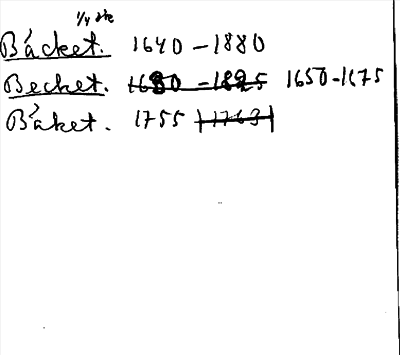 Bácket. 1640-1880
Becket. 1680-1825 1650-1675
Báket. 1755 1763